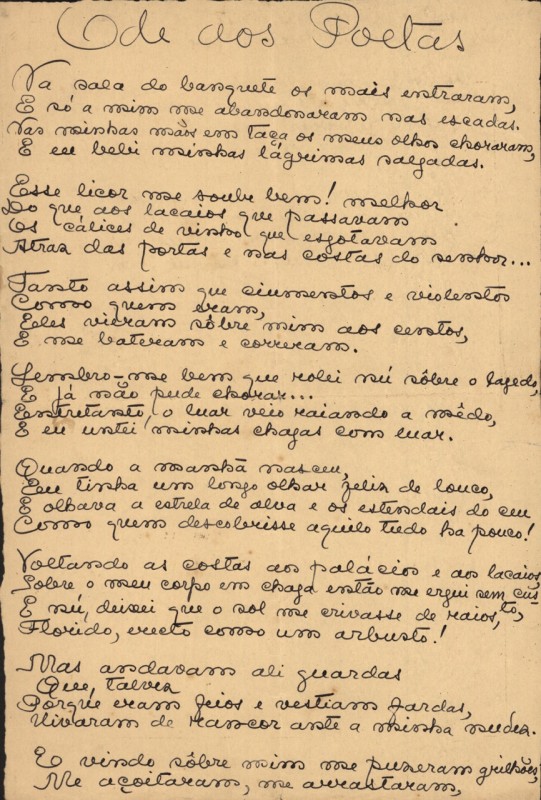 Ode aos Poetas
Na sala do banquete os mais entraram,
E só a mim me abandonaram nas escadas.
Nas minhas mãos em taça os meus olhos choraram,
E eu bebi minhas lágrimas salgadas.
Esse licor me soube bem! melhor
Do que aos lacaios que passavam
Os cálices de vinho que esgotavam
Atraz das portas e nas costas do senhor...
Tanto assim que ciumentos e violentos
Como quem eram,
Eles vieram sôbre mim aos centos,
E me bateram e correram.
Lembro-me bem que rolei nú sôbre o lagedo,
E já não pude chorar...
Entretanto, o luar veio raiando a mêdo,
E eu untei minhas chagas com luar.
Quando a manhã nasceu,
Eu tinha um longo olhar feliz de louco,
E olhava a estrela de alva e os estendais do ceu
Como quem descobrisse aquilo tudo ha pouco!
Voltando as costas aos palácios e aos lacaios,
Sobre o meu corpo em chaga então me ergui sem cus-
E nú, deixei que o sol me crivasse de raios, to,
Florido, erecto como um arbusto!
Mas andavam ali guardas
Que, talvez
Porque eram feios e vestiam fardas,
Uivaram de rancor ante a minha nudez.
E vindo sôbre mim me puzeram grilhões,
Me açoitaram, me arrastaram,